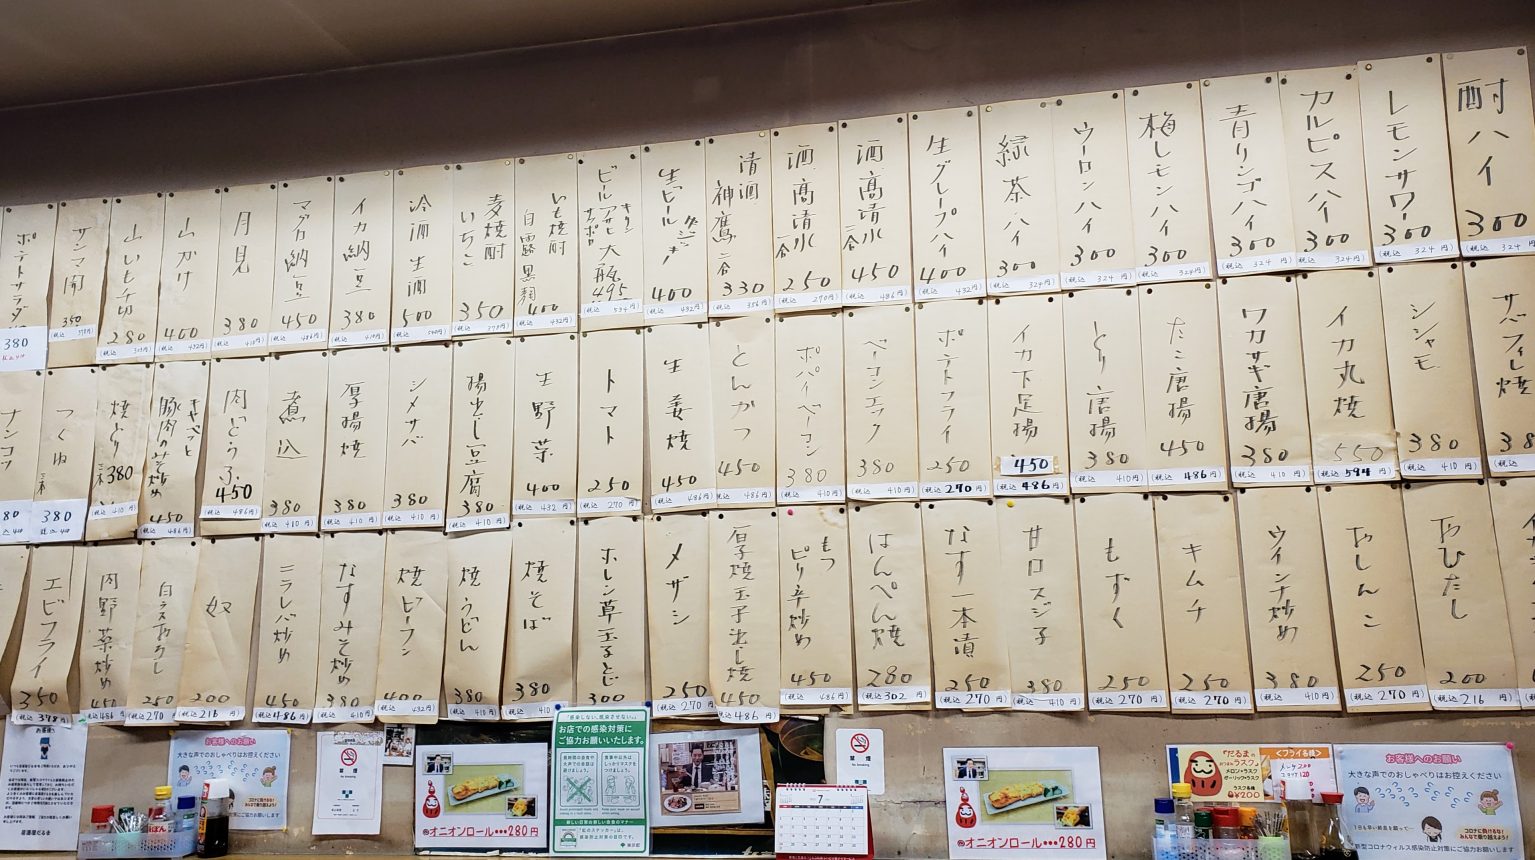 酎ハイ 300
(税込 324円)
レモンサワー 300
(税込 324円)
カルピスハイ 300
(税込 324円)
青リンゴハイ 300
(税込 324円)
梅レモンハイ 300
(税込 324円)
ウーロンハイ 300
(税込 324円)
緑茶ハイ 300
(税込 324円)
生グレープハイ 400
(税込 432円)
酒 高清水 二合 450
(税込 486円)
酒 高清水 一合 250
(税込 270円)
清酒 神鷹 二合 330
(税込 356円)
生ビール 400
(税込 432円)
ビール キリン アサヒ サッポロ 大瓶 495
(税込 534円)
いも焼酎 白露黒麹 400
(税込 432円)
麦焼酎 いちこ 350
(税込 378円)
冷酒 生酒 500
(税込 540円)
イカ納豆 380
(税込 410円)
マグロ納豆 450
(税込 486円)
月見 380
(税込 410円)
山かけ 400
(税込 432円)
山いも千切 280
(税込 302円)
サンマ開 350
(税込 378円)
ポテトサラダ
380
サバフィレ焼
シシャモ 380
(税込 410円)
イカ丸焼 550
(税込 594円)
ワカサギ唐揚 380
(税込 410円)
たこ唐揚 450
(税込 486円)
とり唐揚 380
(税込 410円)
イカ下足揚 450
(税込 486円)
ポテトフライ 250
(税込 270円)
ベーコンエッグ 380
(税込 410円)
ポパイベーコン 380
(税込 410円)
とんかつ 450
(税込 486円)
生姜焼 450
(税込 486円)
トマト 250
(税込 270円)
生野菜 400
(税込 432円)
揚出し豆腐 380
(税込 410円)
シメサバ 380
(税込 410円)
厚揚焼 380
(税込 410円)
煮込 380
(税込 410円)
肉どうふ 450
(税込 486円)
キャベツと豚肉のみそ炒め 450
(税込 486円)
焼とり 二本 380
(税込 410円)
つくね 二本 380
ナンコツ
おひたし 200
(税込 216円)
おしんこ 250
(税込 270円)
ウインナ炒め 380
(税込 410円)
キムチ 250
(税込 270円)
もずく 250
(税込 270円)
甘口スジ子 380
(税込 410円)
なす一本漬 250
(税込 270円)
はんぺん焼 280
(税込 302円)
もつピリ辛炒め 450
(税込 486円)
厚子焼玉子出し焼 450
(税込 486円)
メザシ 250
(税込 270円)
ホーレン草玉子とじ 300
焼そば 380
(税込 410円)
焼うどん 380
(税込 410円)
焼ビーフン 400
(税込 432円)
なすみそ炒め 380
(税込 410円)
ニラレバ炒め 450
(税込 486円)
奴 200
(税込 216円)
白ラスおろし 250
(税込 270円)
肉野菜炒め 450
(税込 486円)
エビフライ 350
(税込 378円)
お客様へ
居酒屋だるま
お客様へのお願い
大きな声でのおしゃべりはお控えください
コロナに負けるな!
みんなで乗り越えよう!
禁煙
No Smoking
オニオンロール・・・280円
「感染しない、感染させない。」
お店での感染対策に
ご協力お願いいたします。
東京都
禁煙
7
オニオンロール・・・280円
「だるまのラスク」
メロン・ラスク
ガーリック・ラスク
ラスク各種
¥200
お客様へのお願い
大きな声でのおしゃべりはお控えください
1日も早い終息を願って…
コロナに負けるな!
みんなで乗り越えよう!
新型コロナウィルス感染防止対策にご協力お願いします